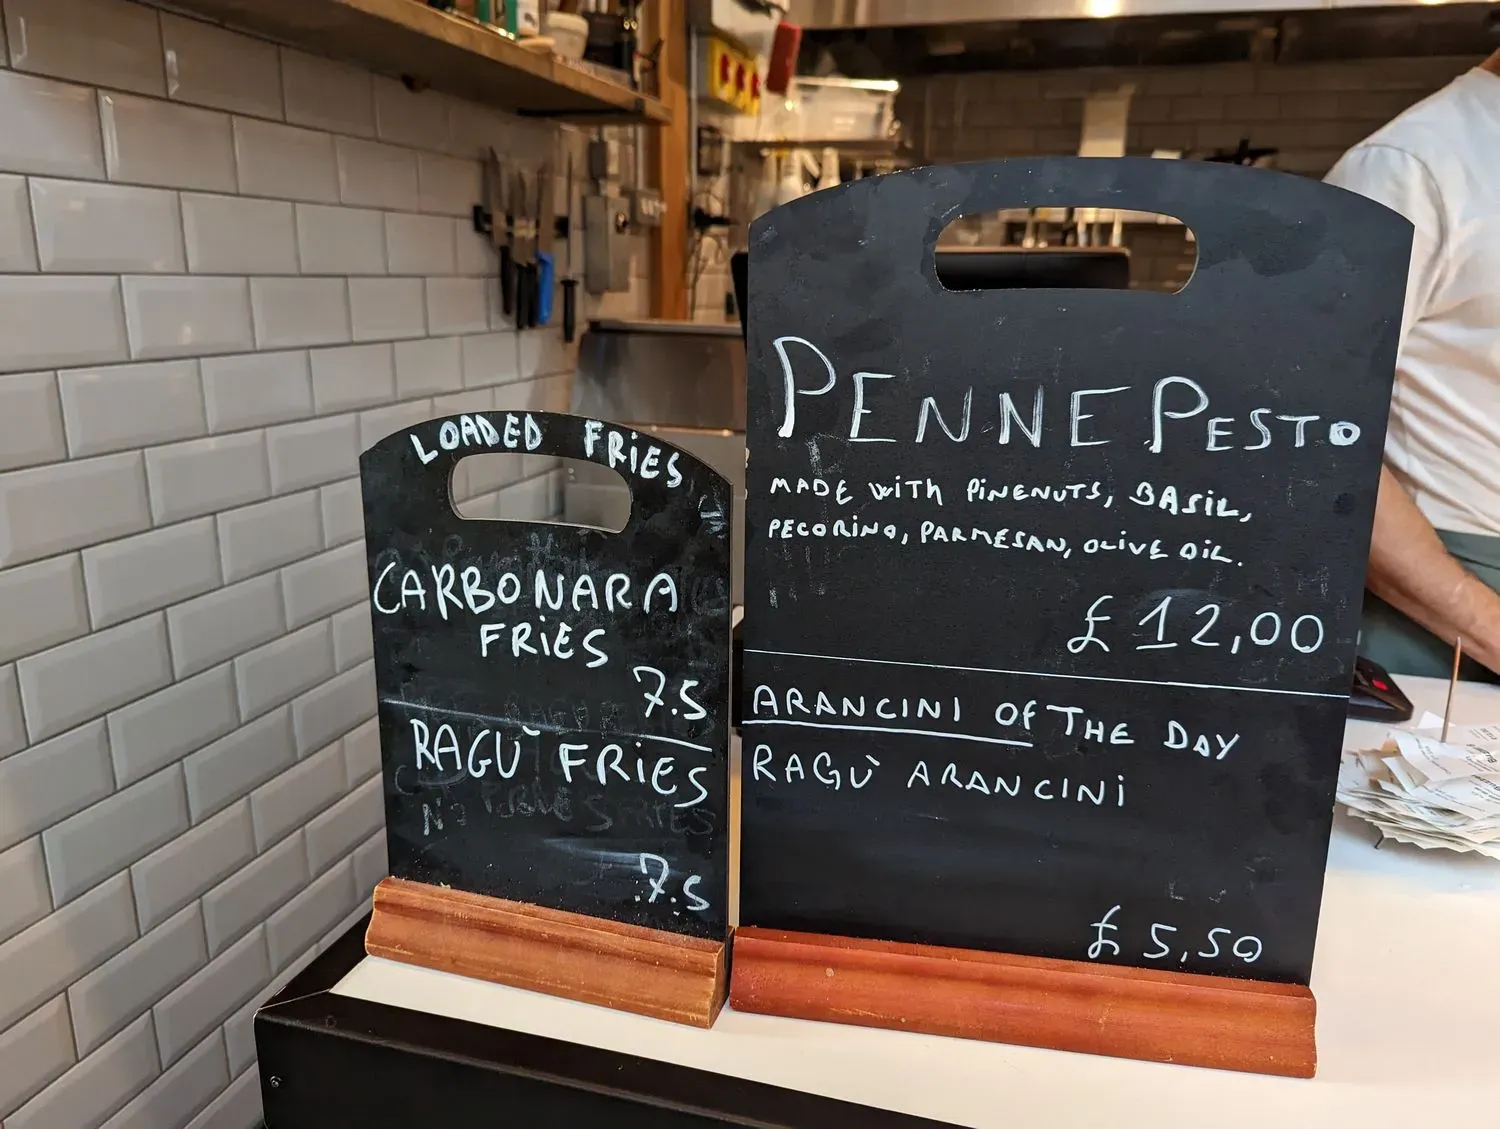 LOADED FRiES
CARBONARA
FRiES
7.5
RAGÙ FRiES
7.5
PENNE PESTO
MADE WiTh PiNENUTS, BASiL,
PECORiNO, PARMESAN, OLiVE OiL.
£12,00
ARANCINI Of THE DAY
RAGÙ ARANCINi
£5,50